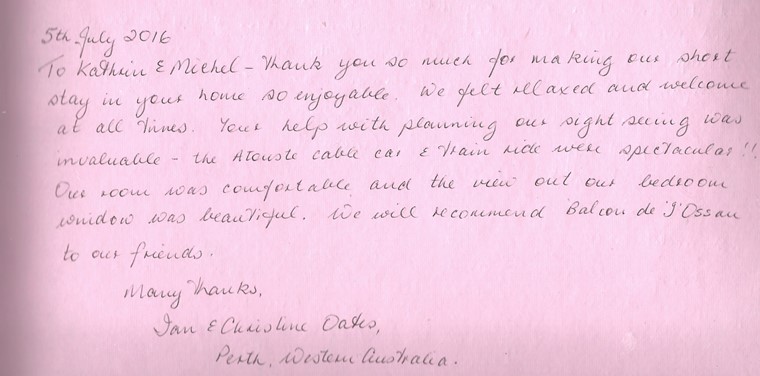 5th July 2016
To Kathrin & Michel - Thank you so much for making our short
stay in your home so enjoyable. We felt relaxed and welcome
at all times. Your help with planning our sight seeing was
invaluable - the Atouste cable car & train ride were spectacular!!
Our room was comfortable and the view out our bedroom
window was beautiful. We will recommend Balcon de l'Ossau
to our friends.
Many Thanks,
Ian & Christine Oates,
Perth, Western Australia.